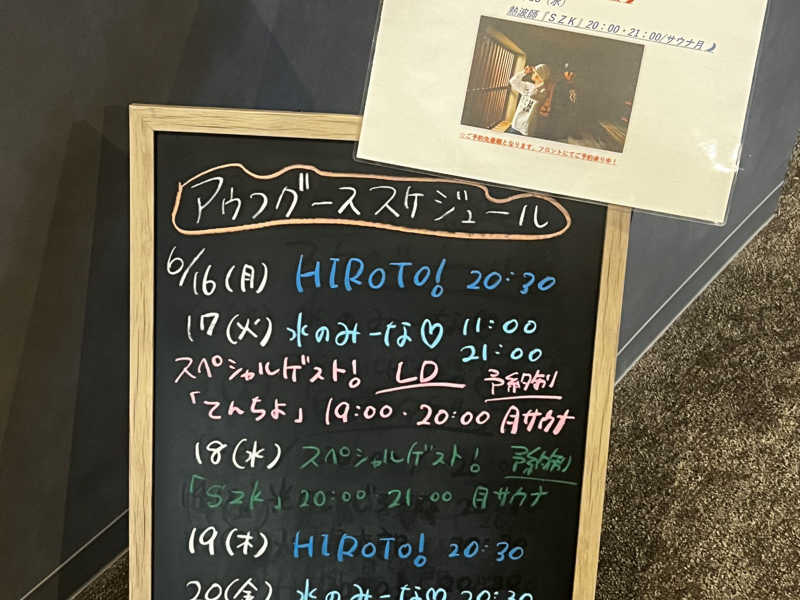 (水)
熱波師『ＳＺＫ』20：00・21：00/サウナ月
※ご予約先着順となります。フロントにてご予約承り中！
アウフグーススケジュール
6/16(月) HIROTO! 20:30
17(火) 水のみーな♡ 11:00
21:00
スペシャルゲスト! LD 予約制
「てんちよ」 19:00・20:00 月サウナ
18(水) スペシャルゲスト! 予約制
「SZK」 20:00 21:00 月サウナ
19(木) HIROTO! 20:30
20(金) 水のみーな♡ 20:30